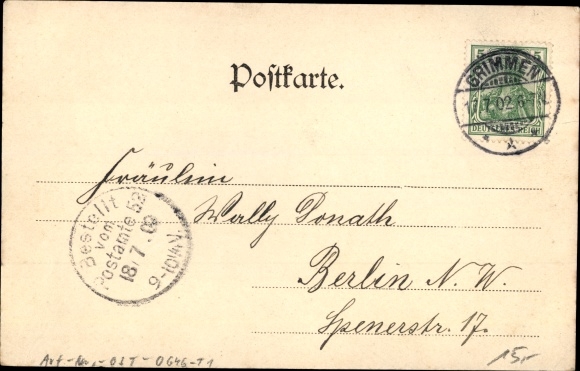 Postkarte.
5 5
GRIMMEN
7.02.
DEUTSCHES REICH
Fräulein
Wally Donath
Berlin N. W.
Spenerstr. 17.
Bestellt
vom
Postamte 52
18.7.02
9-10 V.
15,-